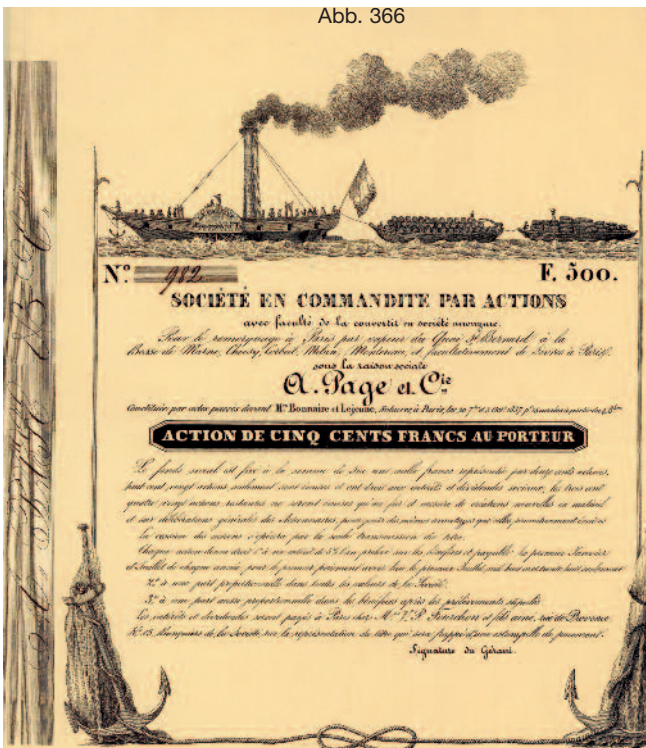 Abb. 366
N.º 982 F. 500.
SOCIÉTÉ EN COMMANDITE PAR ACTIONS
avec faculté de la convertir en société anonyme.
Pour le remorquage à Paris par vapeur du Quai St Bernard à la
Bosse de Marne, Choisy, Corbeil, Melun, Montereau, et facultativement de à Paris.
sous la raison sociale
A. Page et Cie
Constituée par actes passés devant Mes Bonnaire et Lejeune, Notaires à Paris, les 30 7bre et 3 Oct. 1837
ACTION DE CINQ CENTS FRANCS AU PORTEUR
Le fonds social est fixé à la somme de mille francs représenté par cents actions,
huit cent vingt actions seulement sont émises et ont droit aux intérêts et dividendes sociaux, les trois cent
quatre vingt actions restantes ne seront émises qu'au fur et mesure de créations nouvelles en matériel
et sur délibérations générales des Actionnaires, pour jouir des mêmes avantages que celles premièrement émises
la cession des actions s'opérera par la seule transmission du titre.
Chaque action donne droit 1.º à un intérêt de 5% l'an prélevé sur les bénéfices et payable le premier Janvier
et Juillet de chaque année, pour le premier paiement avoir lieu le premier Juillet mil huit cent trente huit
2.º à une part proportionnelle dans toutes les valeurs de la Société.
3.º à une part aussi proportionnelle dans les bénéfices après les prélèvements stipulés
Les intérêts et dividendes seront payés à Paris chez Mrs J. P. et fils aîné, rue de Provence
N.º 13, Banquiers de la Société, sur la représentation du titre qui sera frappé d'une estampille de paiement.
Signature du Gérant.